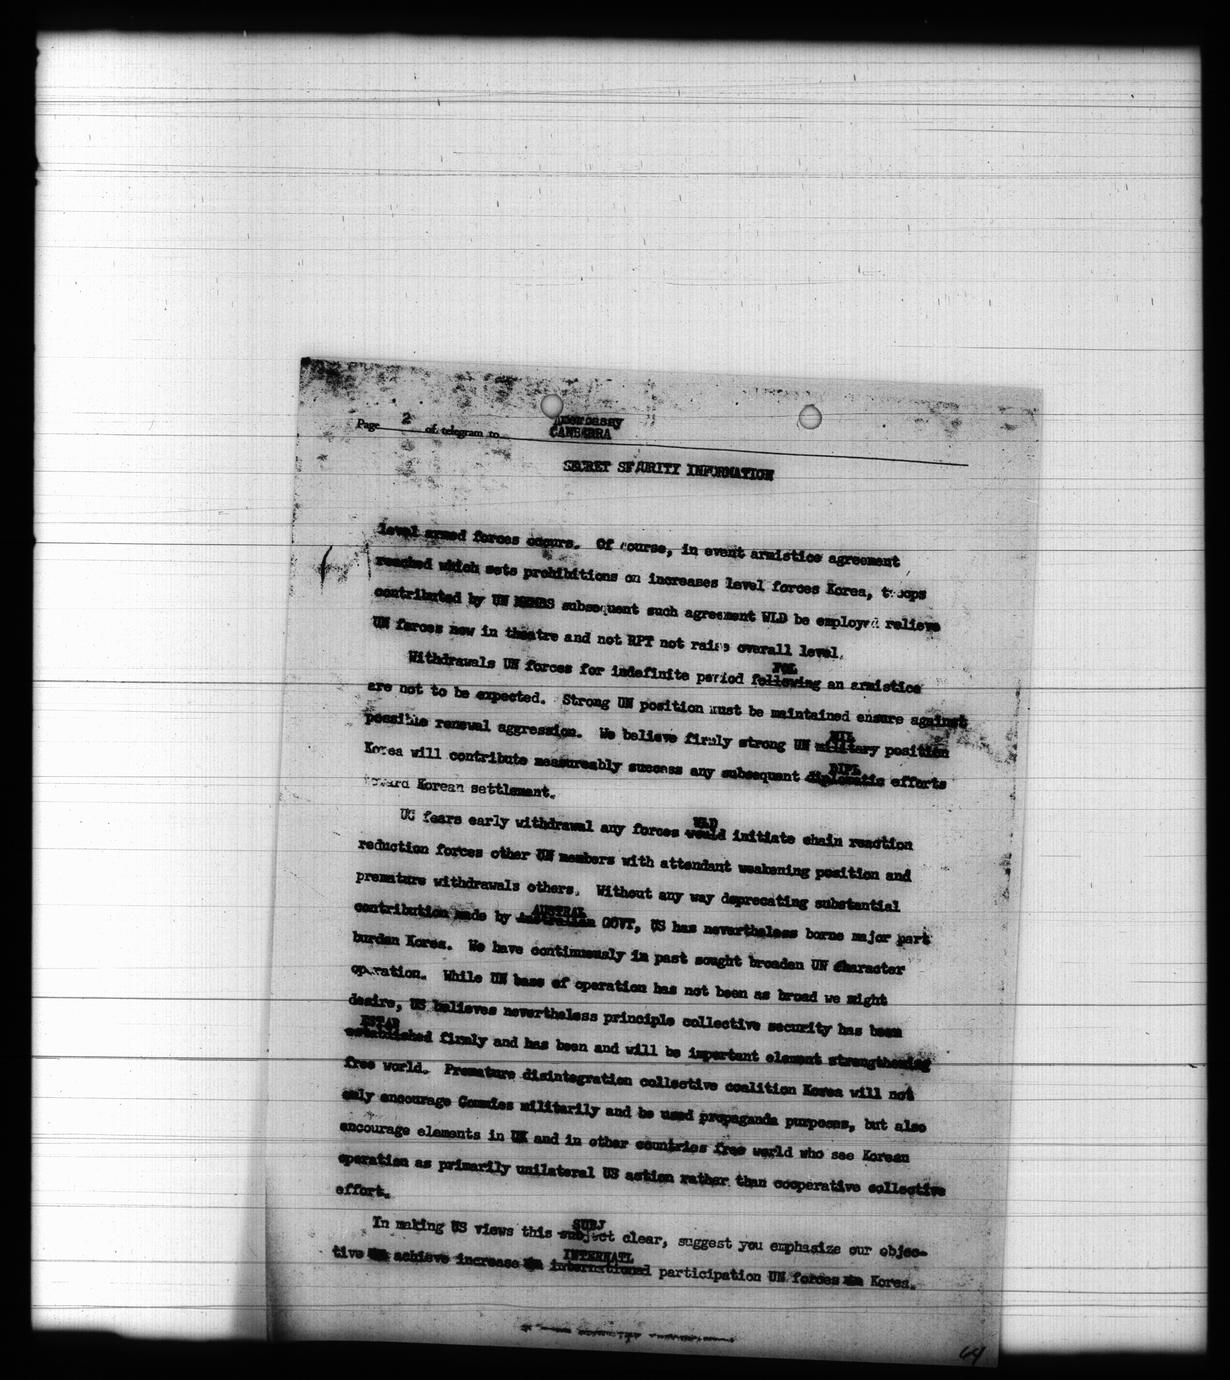 Page 2 of telegram to Amembassy
CANBERRA
SECRET SECURITY INFORMATION
level armed forces occurs. Of course, in event armistice agreement
reached which sets prohibitions on increases level forces Korea, troops
contributed by UN MEMBS subsequent such agreement WLD be employed relieve
UN forces now in theatre and not RPT not raise overall level.
FOL
Withdrawals UN forces for indefinite period following an armistice
are not to be expected. Strong UN position must be maintained ensure against
MIL
possible renewal aggression. We believe firmly strong UN military position
DIPL
Korea will contribute measureably success any subsequent diplomatic efforts
toward Korean settlement.
WLD
US fears early withdrawal any forces would initiate chain reaction
reduction forces other UN members with attendant weakening position and
premature withdrawals others. Without any way deprecating substantial
AUSTRAL
contribution made by Australian GOVT, US has nevertheless borne major part
burden Korea. We have continuously in past sought broaden UN character
operation. While UN base of operation has not been as broad we might
desire, US believes nevertheless principle collective security has been
ESTAB
established firmly and has been and will be important element strengthening
free world. Premature disintegration collective coalition Korea will not
only encourage Commies militarily and be used propaganda purposes, but also
encourage elements in UK and in other countries free world who see Korean
operation as primarily unilateral US action rather than cooperative collective
effort.
SUBJ
In making US views this subject clear, suggest you emphasize our objec-
INTERNATL
tive achieve increase international participation UN forces Korea.
64